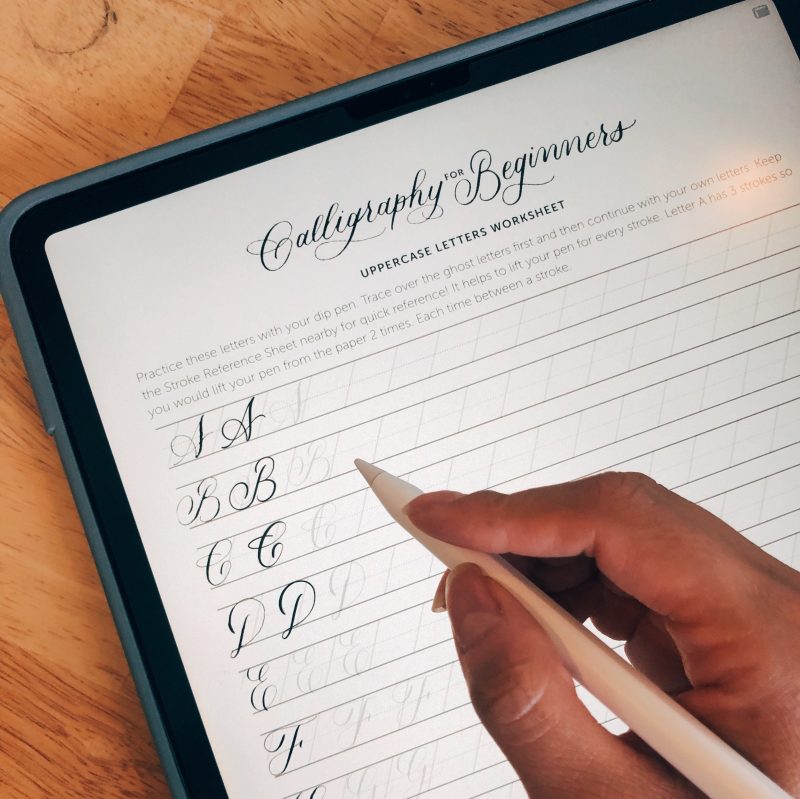 Calligraphy FOR Beginners
UPPERCASE LETTERS WORKSHEET
Practice these letters with your dip pen. Trace over the ghost letters first and then continue with your own letters. Keep
the Stroke Reference Sheet nearby for quick reference! It helps to lift your pen for every stroke. Letter A has 3 strokes so
you would lift your pen from the paper 2 times. Each time between a stroke.
A A A
B B B
C C C
D D D
E E E
F F F
G G G